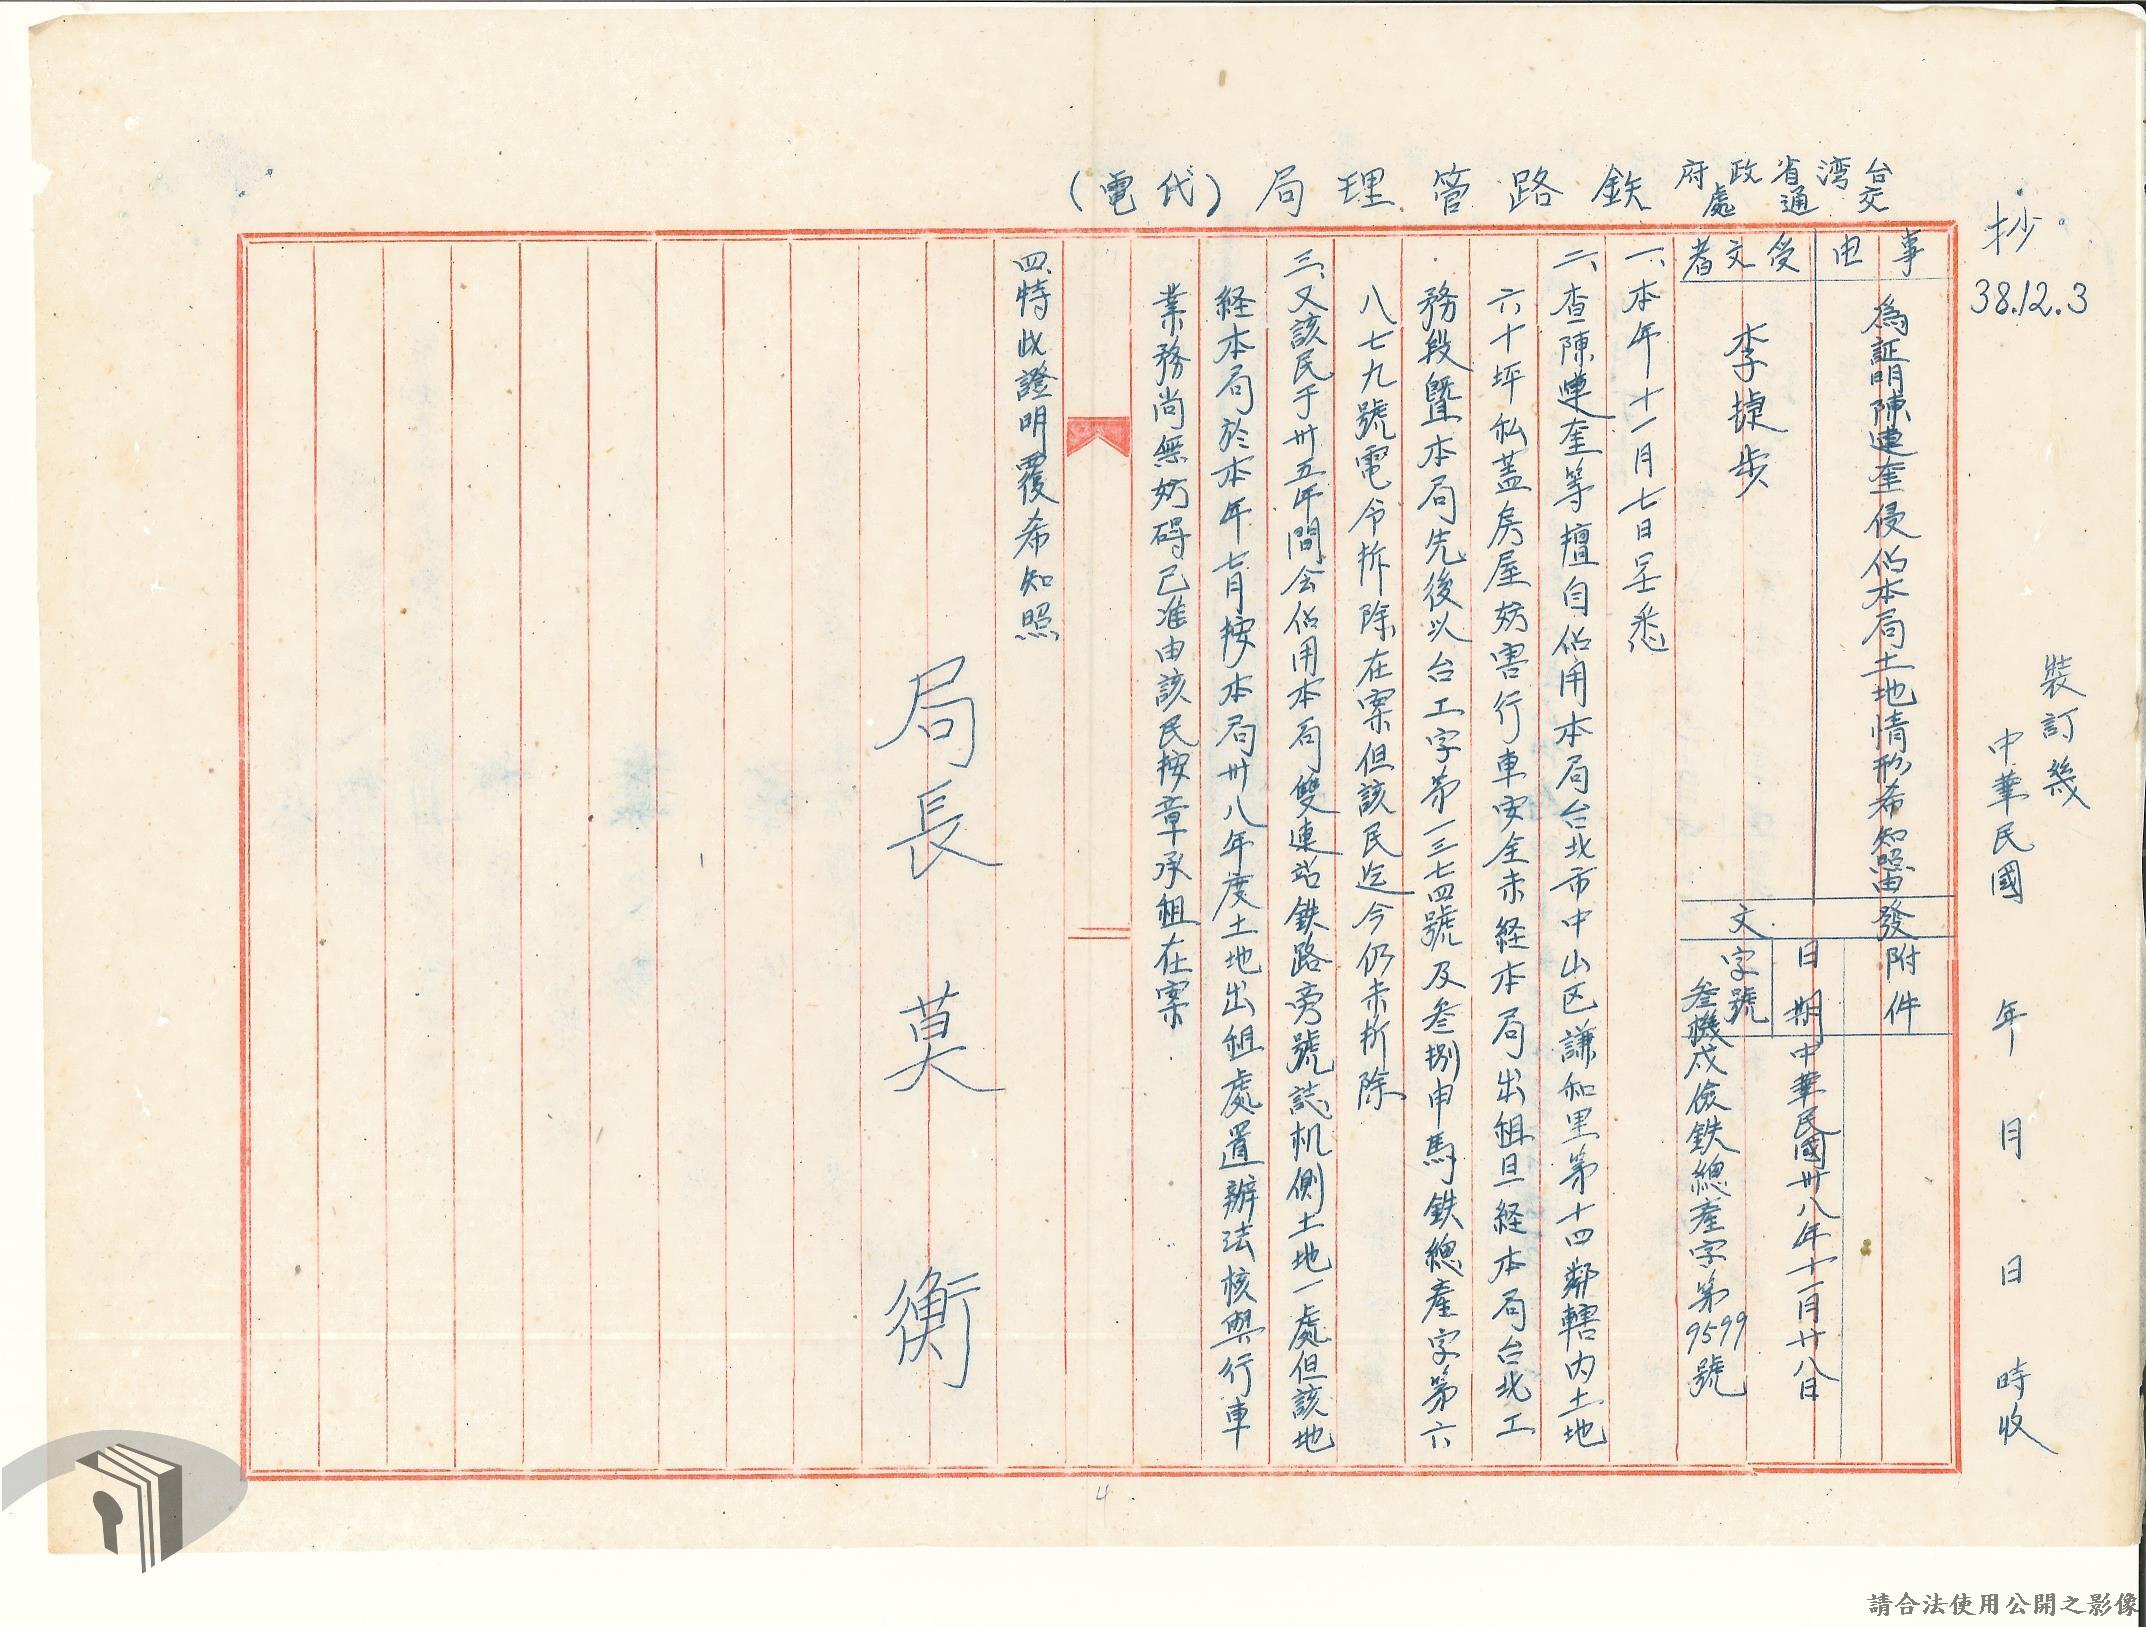 抄
38.12.3
裝訂幾
中華民國 年 月 日 時收
台灣省政府
交通處
鉄路管理局(代電)
事由
為証明陳連奎侵佔本局土地情形希知照由
受文者
李捷步
附件
發文
日期
中華民國卅八年十一月廿八日
字號
叁機戍儉鉄總產字第9599號
一、本年十一月七日呈悉
二、查陳連奎等擅自佔用本局台北市中山区謙和里第十四鄰轄內土地
六十坪私蓋房屋妨害行車安全未経本局出租且経本局台北工
務段暨本局先後以台工字第一三七四號及叁捌申馬鉄總產字第六
八七九號電令拆除在案但該民迄今仍未拆除
三、又該民于卅五年間会佔用本局雙連站鉄路旁號誌机側土地一處但該地
経本局於本年七月按本局卅八年度土地出租處置辦法核與行車
業務尚無妨碍已准由該民按章承租在案
四、特此證明覆希知照
局長莫衡
4
請合法使用公開之影像